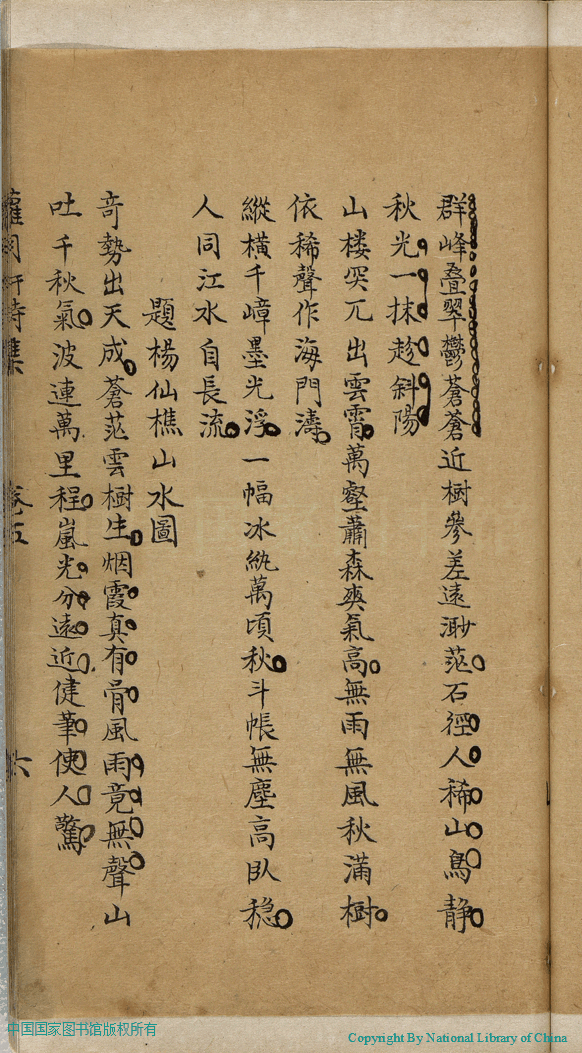 群峰叠翠鬱蒼蒼近樹參差遠渺茫石徑人稀山鳥静
秋光一抹趁斜陽
山楼突兀出雲霄萬壑蕭森爽氣高無雨無風秋滿樹
依稀聲作海門濤
縱横千嶂墨光浮一幅冰紈萬頃秋斗帳無塵高臥稳
人同江水自長流
題楊仙樵山水圖
竒勢出天成蒼茫雲樹生烟霞真有骨風雨竟無聲山
吐千秋氣波連萬里程嵐光分遠近健筆使人驚
詩集
卷五
六
中国国家图书馆版权所有
Copyright By National Library of China